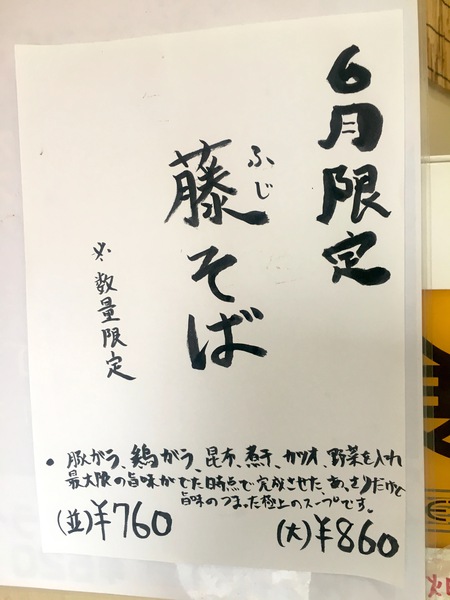 6月限定
ふじ
藤そば
※数量限定
・豚がラ、鶏がラ、昆布、煮干、カツオ、野菜を入れ
最大限の旨味がでた時点で完成させたあっさりだけど
旨味のつまった極上のスープです。
(並)¥760
(大)¥860